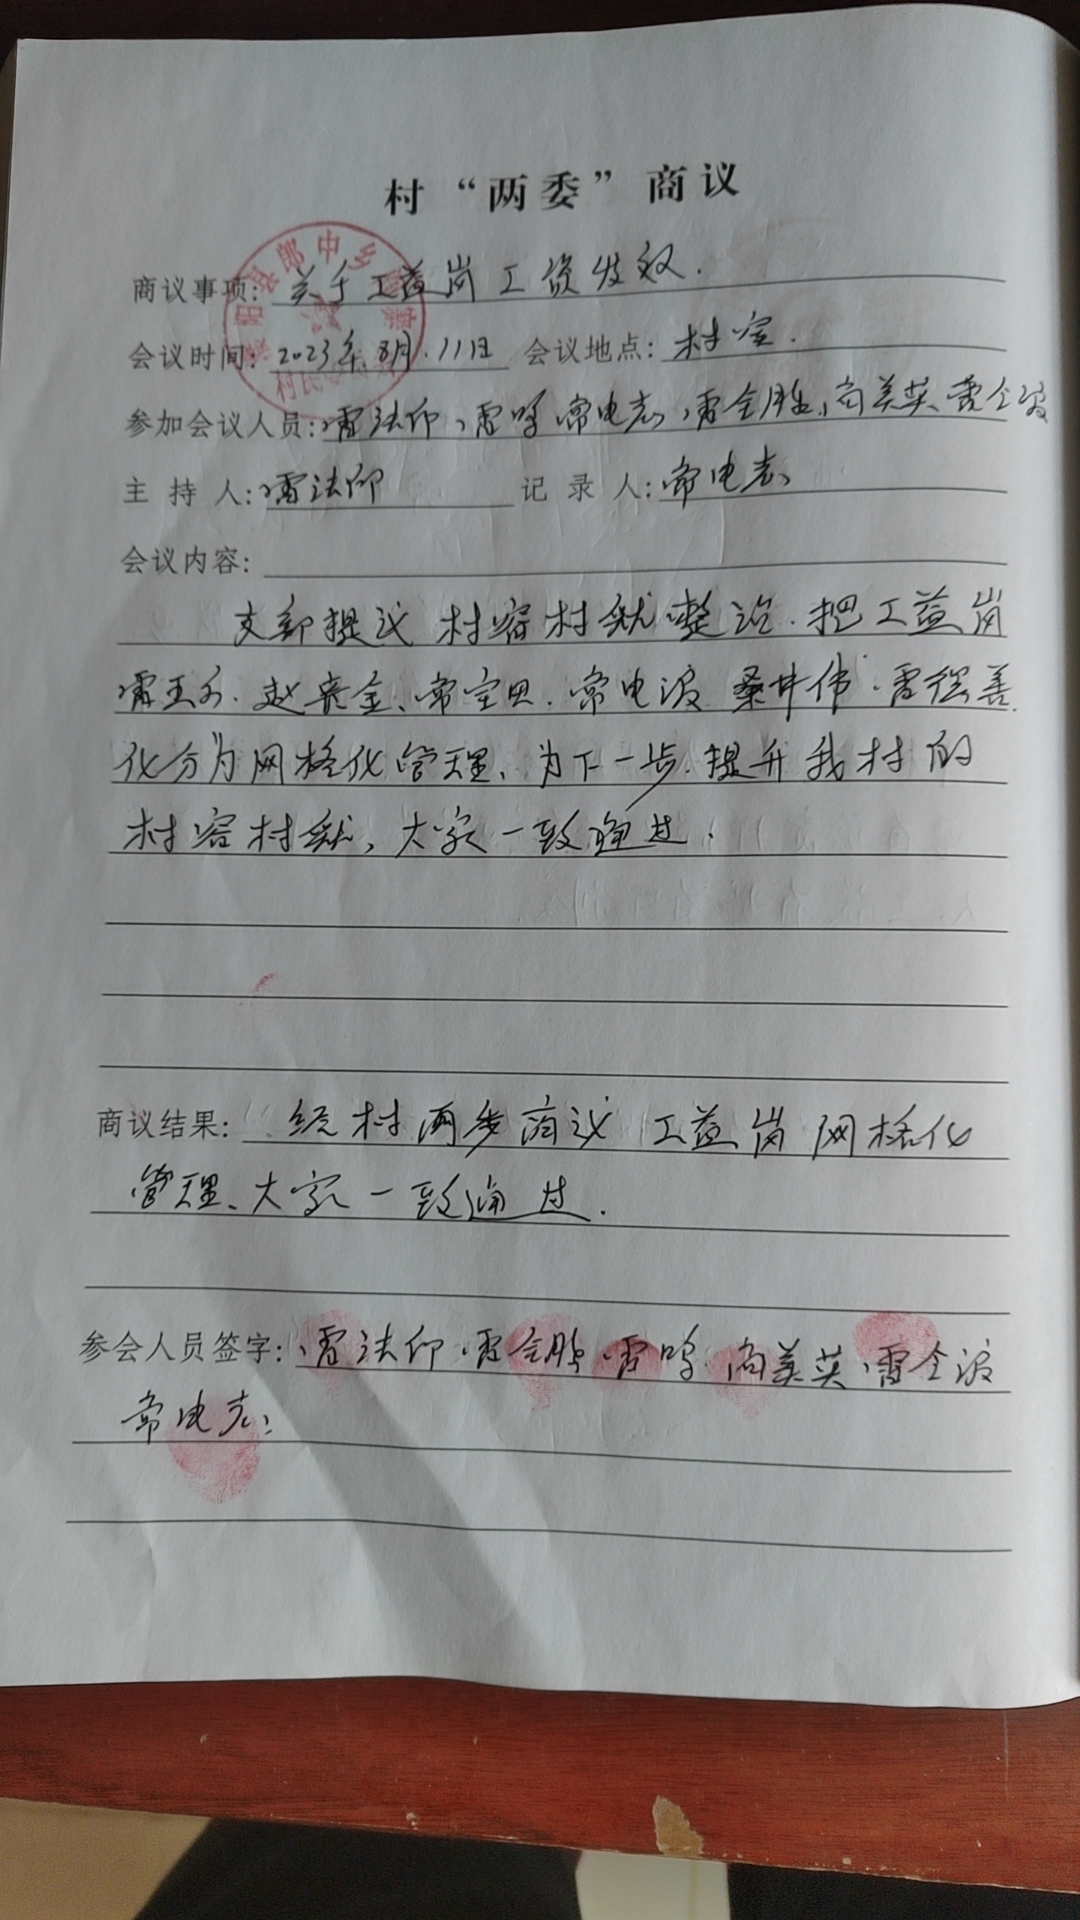 村“两委”商议
商议事项：关于工益岗工资发放.
会议时间：2023年.8月.11日 会议地点：村室.
参加会议人员：雷法仰、雷鸣 常电志、雷全胜、尚美英、雷全波
主持人：雷法仰 记录人：常电志
会议内容：
支部提议 村容村貌整治.把工益岗
雷玉.赵 金、常宝贝.常电波 桑 伟.雷强善.
化分为网格化管理、为下一步.提升我村的
村容村貌，大家一致通过.
商议结果：经村两委商议 工益岗 网格化
管理、大家一致通过.
参会人员签字：雷法仰.雷全胜.雷鸣.尚美英.雷全波
常电志
县郎中乡
村民